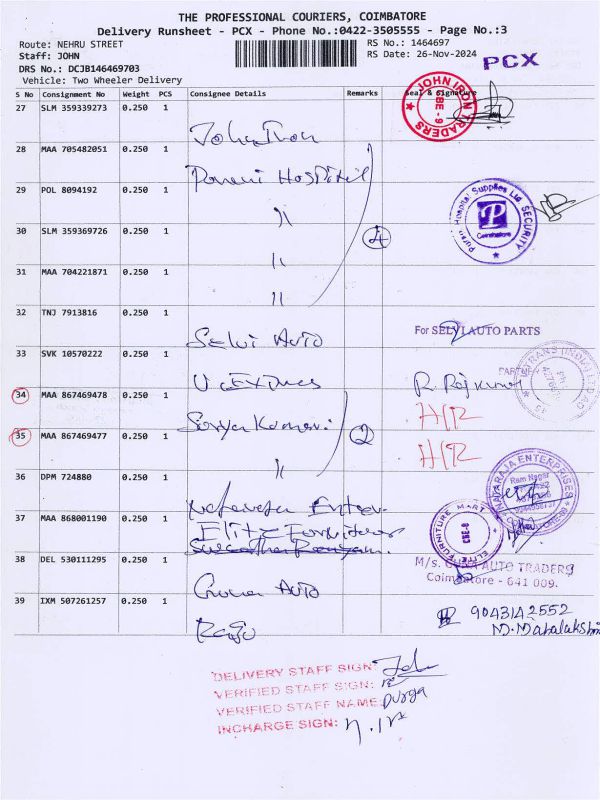 THE PROFESSIONAL COURIERS, COIMBATORE
Delivery Runsheet - PCX - Phone No.:0422-3505555 - Page No.:3
Route: NEHRU STREET
RS No.: 1464697
Staff: JOHN
RS Date: 26-Nov-2024
PCX
DRS No.: DCJB146469703
Vehicle: Two Wheeler Delivery
S No Consignment No Weight PCS Consignee Details Remarks Seal & Signature
27 SLM 359339273 0.250 1
JOHN IRON TRADERS
CBE - 9
28 MAA 705482051 0.250 1
Hospital
29 POL 8094192 0.250 1
〃
Hospital Supplies Ltd. SECURITY
P
Coimbatore
30 SLM 359369726 0.250 1
〃
4
31 MAA 704221871 0.250 1
〃
32 TNJ 7913816 0.250 1
Selvi Auto
For SELVI AUTO PARTS
33 SVK 10570222 0.250 1
PARTNER
R. Rajkumar
34 MAA 867469478 0.250 1
H/R
35 MAA 867469477 0.250 1
〃
2
H/R
36 DPM 724880 0.250 1
NATARAJA ENTERPRISES
Ram Nagar
37 MAA 868001190 0.250 1
Elite Furniture
ELITE FURNITURE MART
38 DEL 530111295 0.250 1
Auto
M/s. GUNA AUTO TRADERS
Coimbatore - 641 009.
39 IXM 507261257 0.250 1
Raju
9043142552
M. Mahalakshmi
DELIVERY STAFF SIGN: John
VERIFIED STAFF SIGN:
VERIFIED STAFF NAME: Durga
INCHARGE SIGN: